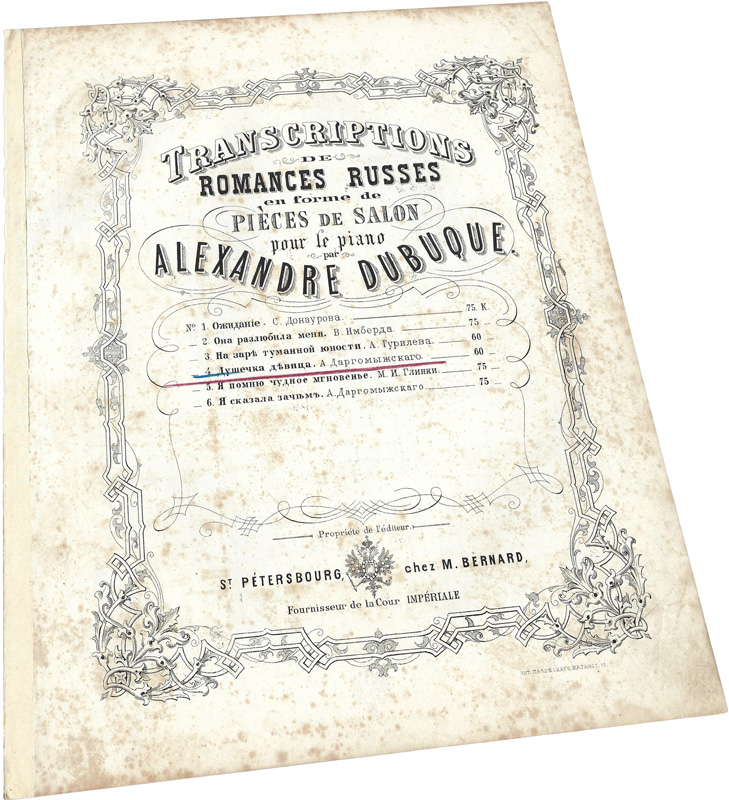 TRANSCRIPTIONS
DE
ROMANCES RUSSES
en forme de
PIÈCES DE SALON
pour le piano
par
ALEXANDRE DUBUQUE.
№ 1. Ожиданіе. С. Донаурова. 75. К.
2. Она разлюбила меня. В. Имберда 75
3. На зарѣ туманной юности. А. Гурилева. 60
4. Душечка дѣвица. А. Даргомыжскаго 60
5. Я помню чудное мгновенье. М. И. Глинки. 75
6. Я сказала зачѣмъ. А. Даргомыжскаго 75
Propriété de l'éditeur.
ST PÉTERSBOURG, chez M. BERNARD,
Fournisseur de la Cour IMPÉRIALE